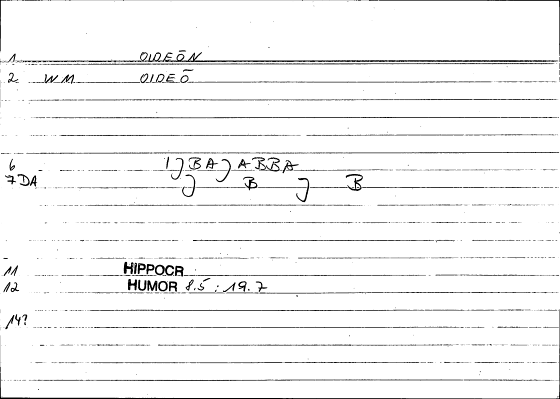 1 OIDEŌN
2 WM OIDEŌ
6 1) BA) ABBA
7DA ) B ) B
11 HIPPOCR
12 HUMOR 8.5 : 19.7
14?